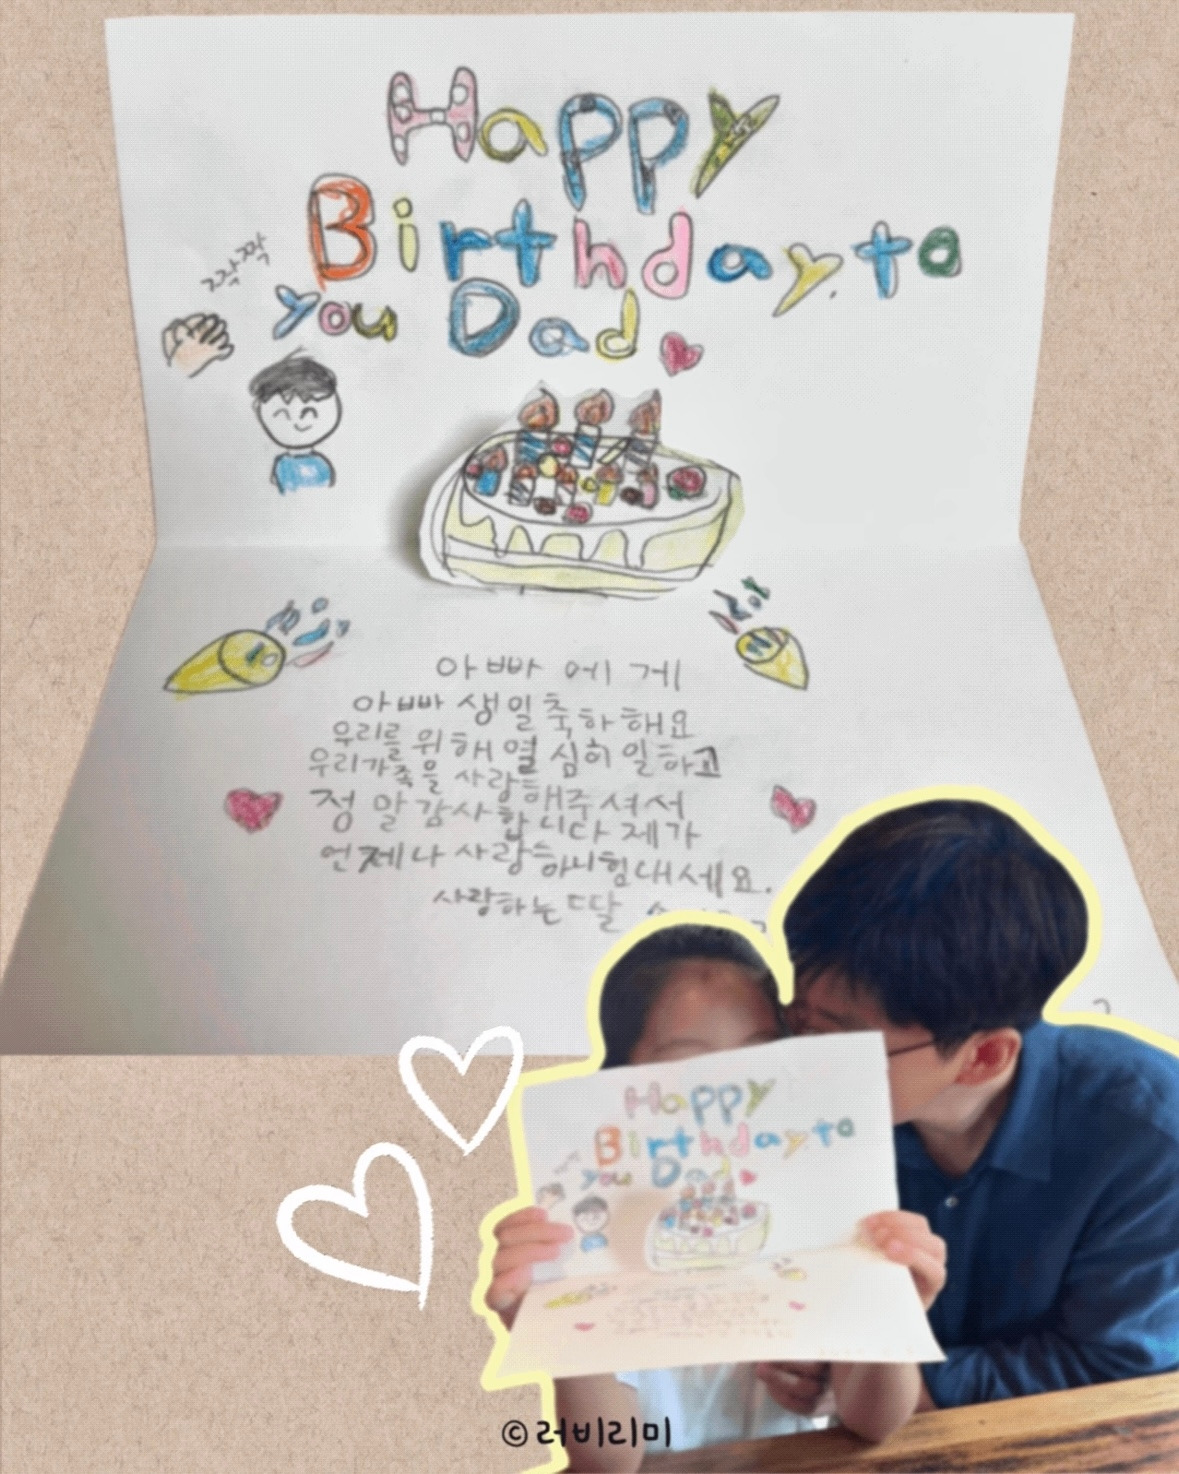 Happy
Birthday to
you Dad
짝짝
아빠에게
아빠 생일축하해요
우리를 위해 열심히 일하고
우리가족을 사랑해주셔서
정말감사합니다 제가
언제나 사랑하니 힘내세요.
사랑하는 딸
Happy
Birthday to
you Dad
©러비리미